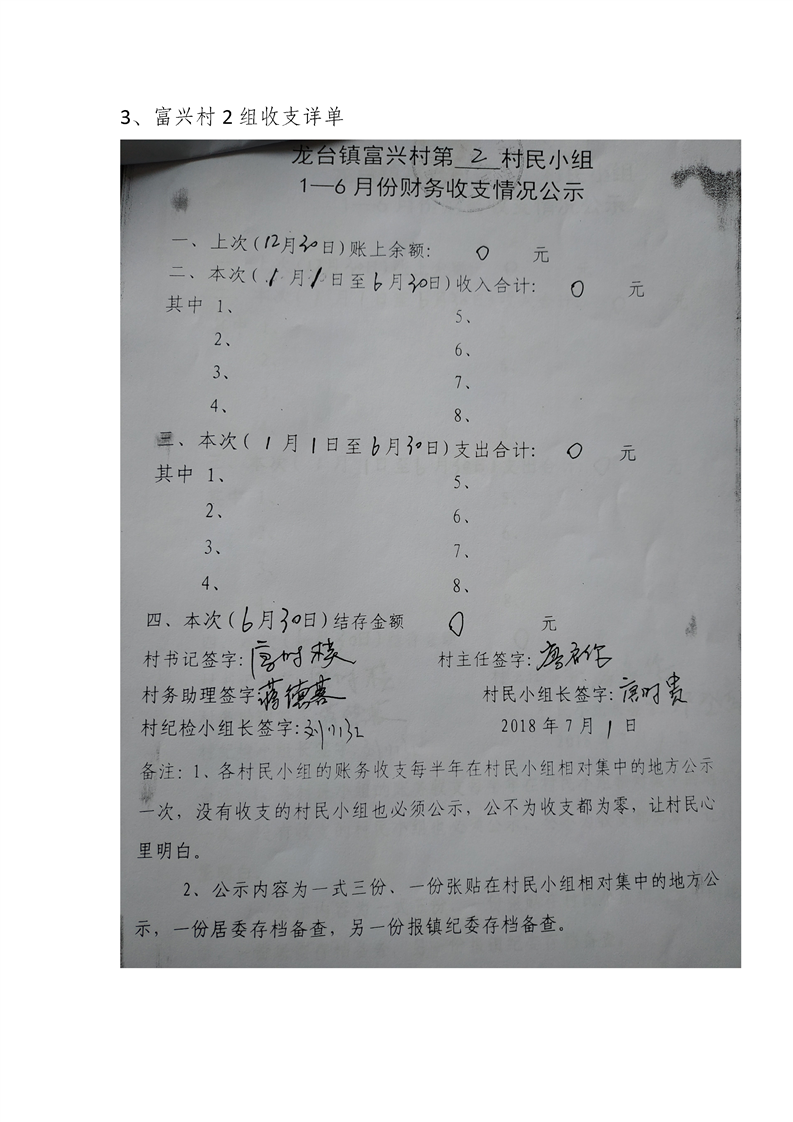 3、富兴村 2 组收支详单
龙台镇富兴村第 2 村民小组
1—6 月份财务收支情况公示
一、上次(12月30日)账上余额: 0 元
二、本次( 1 月 1 日至 6 月 30 日)收入合计: 0 元
其中 1、 5、
2、 6、
3、 7、
4、 8、
三、本次( 1 月 1 日至 6 月 30 日)支出合计: 0 元
其中 1、 5、
2、 6、
3、 7、
4、 8、
四、本次( 6 月 30 日)结存金额 0 元
村书记签字: 村主任签字:
村务助理签字: 蒋德喜 村民小组长签字: 唐时贵
村纪检小组长签字: 刘小红 2018 年 7 月 1 日
备注: 1、各村民小组的账务收支每半年在村民小组相对集中的地方公示
一次，没有收支的村民小组也必须公示，公不为收支都为零，让村民心
里明白。
2、公示内容为一式三份、一份张贴在村民小组相对集中的地方公
示，一份居委存档备查，另一份报镇纪委存档备查。